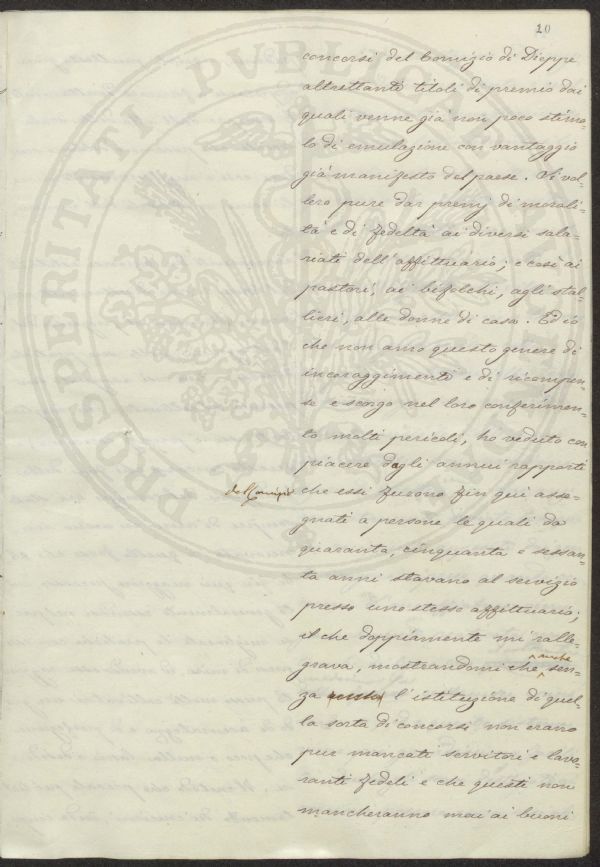 20
concorsi del Comizio di Dieppe
altrettanti titoli di premio dai
quali venne già non poco stimo-
lo di emulazione con vantaggio
già manifesto del paese. Si vol-
lero pure dar premj di morali-
tà e di fedeltà ai diversi sala-
riati dell'affittuario; e così ai
pastori, ai bifolchi, agli stal-
lieri, alle donne di casa. Ed io
che non amo questo genere di
incoraggimenti e di ricompen-
se e scorgo nel loro conferimen-
to molti pericoli, ho veduto con
piacere dagli annui rapporti
del Comizio
che essi furono fin qui asse-
gnati a persone le quali da
quaranta, cinquanta e sessan-
ta anni stavano al servizio
presso uno stesso affittuario;
il che doppiamente mi ralle-
grava, mostrandomi che anche sen-
za l'istituzione di quel-
la sorta di concorsi non erano
pur mancati servitori e lavo-
ranti fedeli e che questi non
mancheranno mai ai buoni
PROSPERITATI PVBLICAE